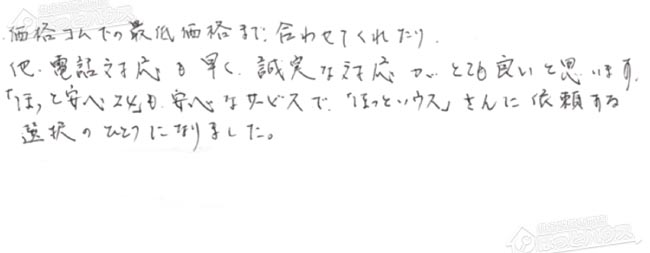 価格コムでの最低価格まで合わせてくれたり、
他、電話対応も早く、誠実な対応がとても良いと思います。
「ほっと安心24」も、安心なサービスで、「ほっとハウス」さんに依頼する
選択のひとつになりました。
ほっとハウス